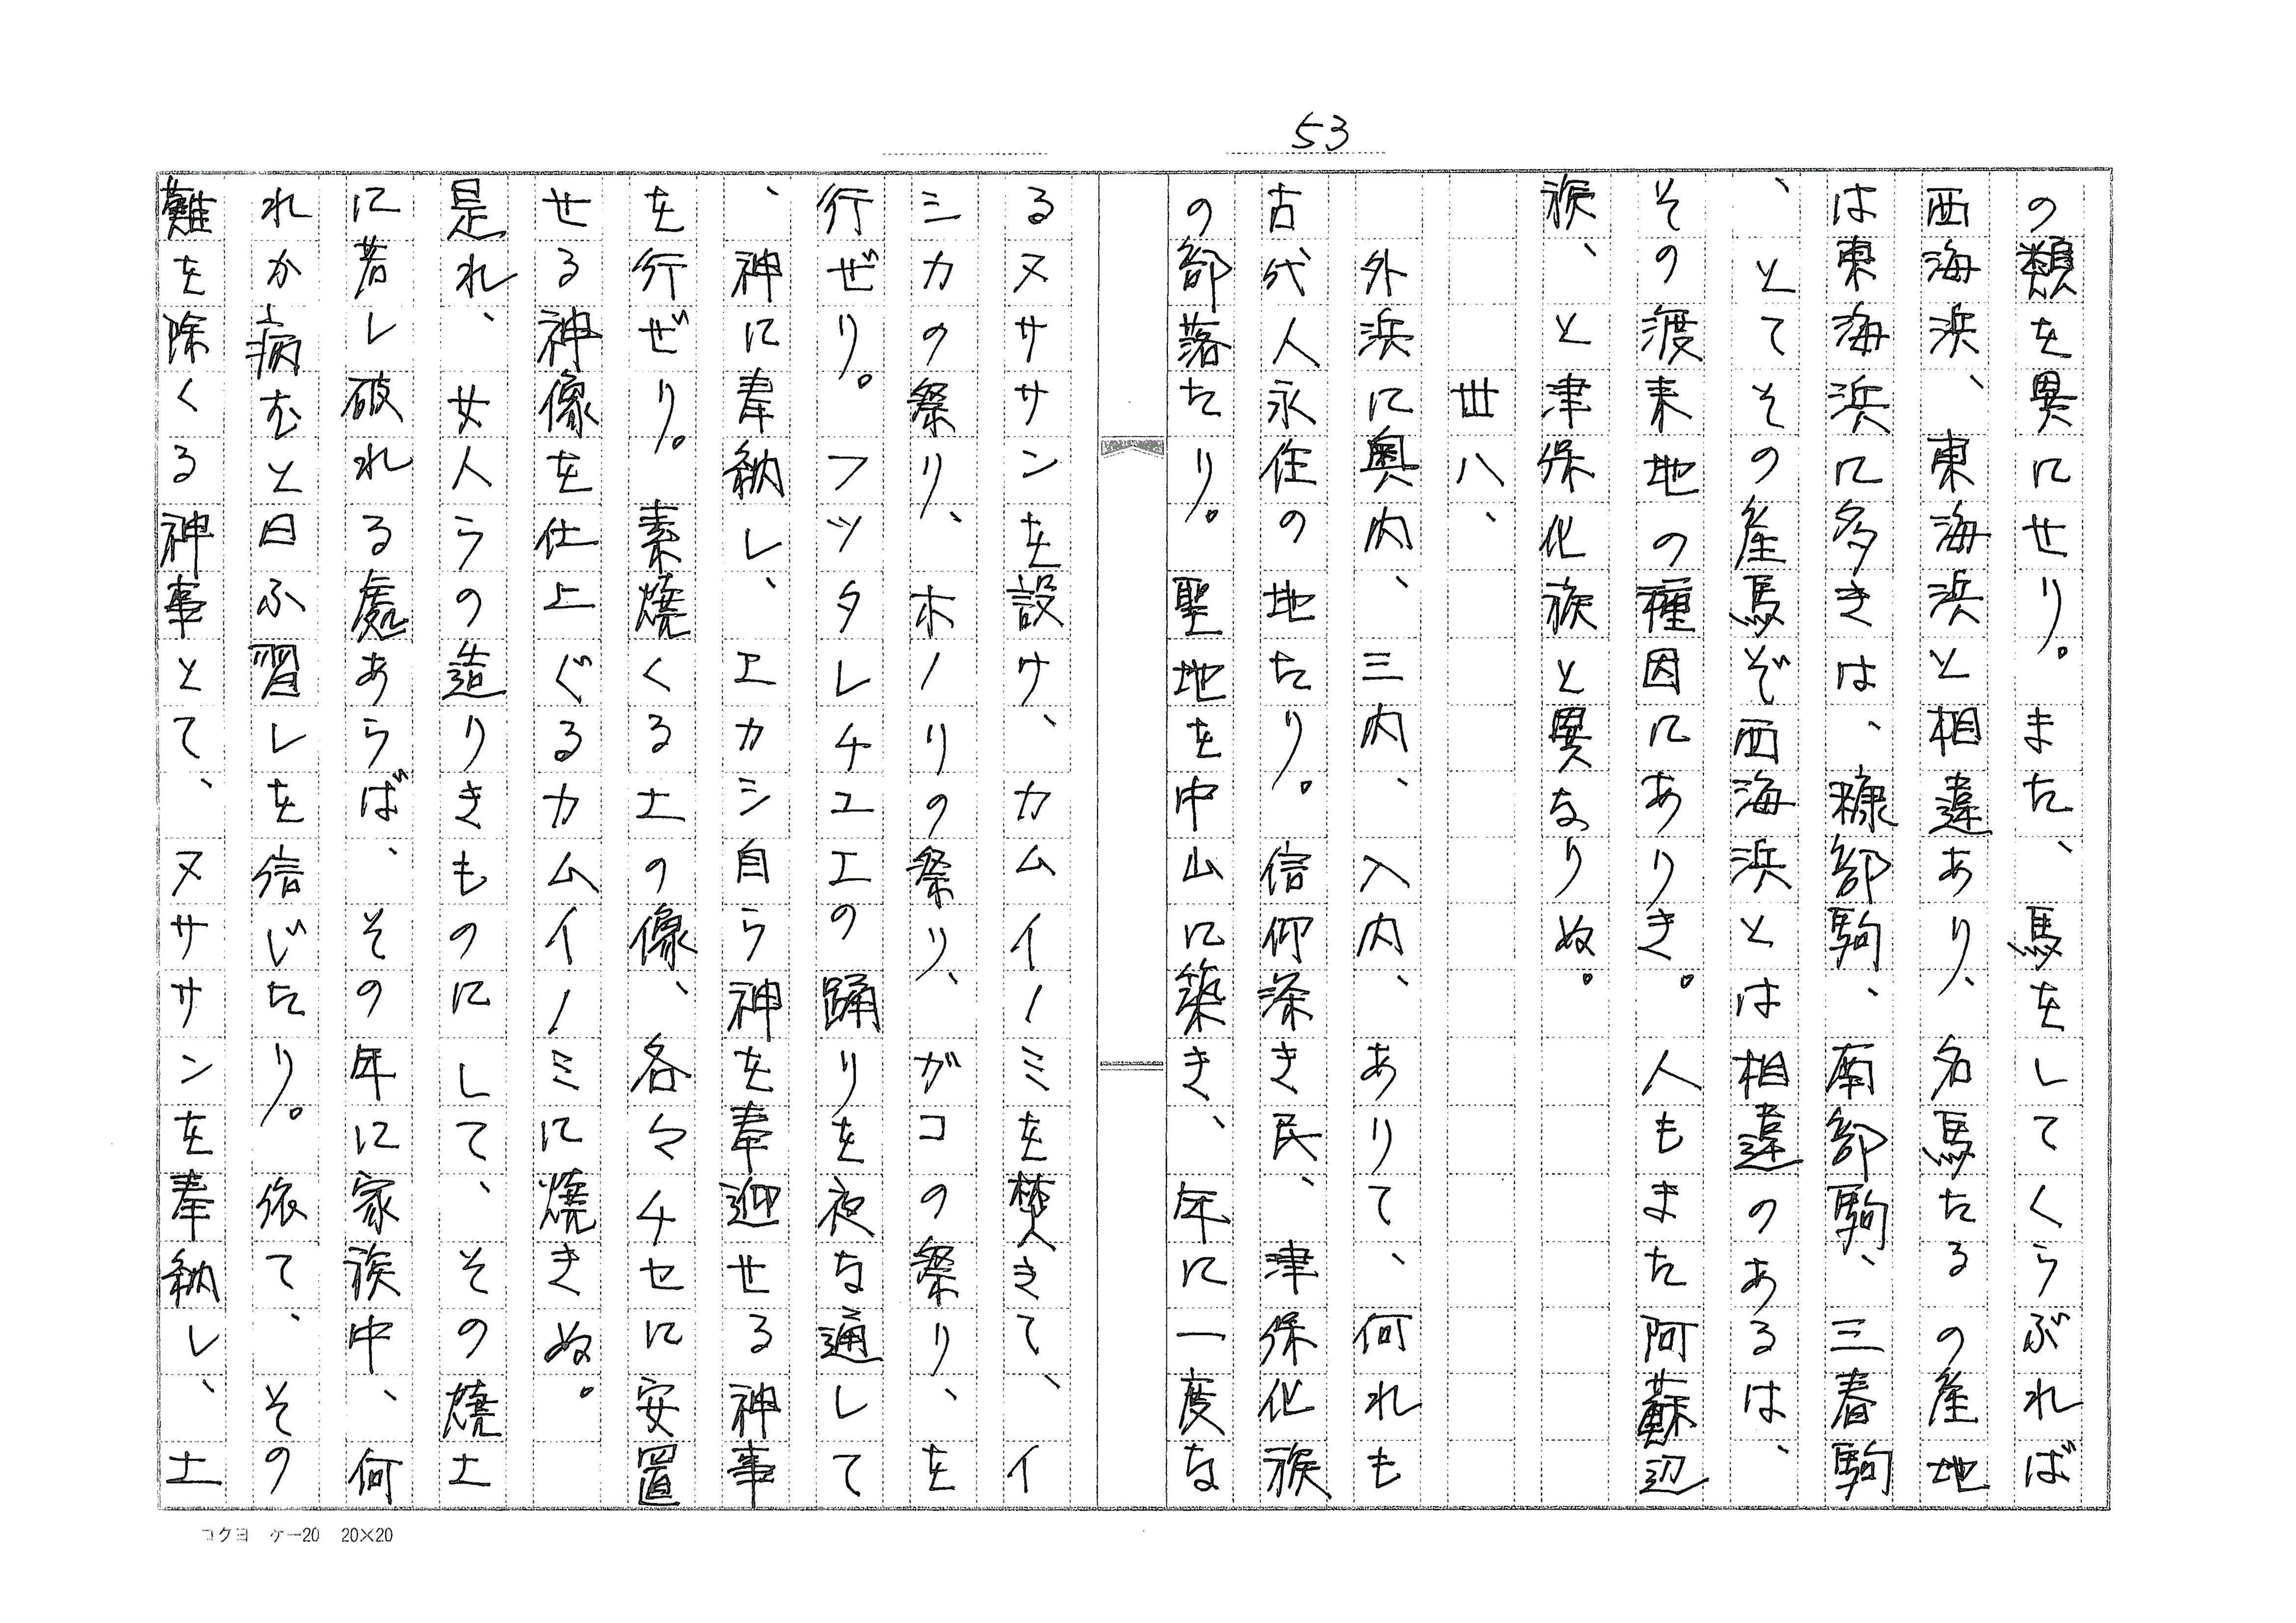 53
の類を異にせり。また、馬をしてくらぶれば
西海浜、東海浜と相違あり、名馬たるの産地
は東海浜に多きは、糠部駒、南部駒、三春駒
、とてその産馬ぞ西海浜とは相違のあるは、
その渡来地の種因にありき。人もまた阿蘇辺
族、と津保化族と異なりぬ。
丗八、
外浜に奥内、三内、入内、ありて、何れも
古代人永住の地たり。信仰深き民、津保化族
の部落たり。聖地を中山に築き、年に一度な
るヌササンを設ケ、カムイノミを焚きて、イ
シカの祭り、ホノリの祭り、ガコの祭り、を
行ぜり。フッタレチュエの踊りを夜な通して
、神に奉納し、エカシ自ら神を奉迎せる神事
を行ぜり。素焼くる土の像、各々チセに安置
せる神像を仕上ぐるカムイノミに焼きぬ。
是れ、女人らの造りきものにして、その焼土
に若し破れる處あらば、その年に家族中、何
れか病むと曰ふ習しを信じたり。依て、その
難を除くる神事とて、ヌササンを奉納し、土
コクヨ ケー20 20×20